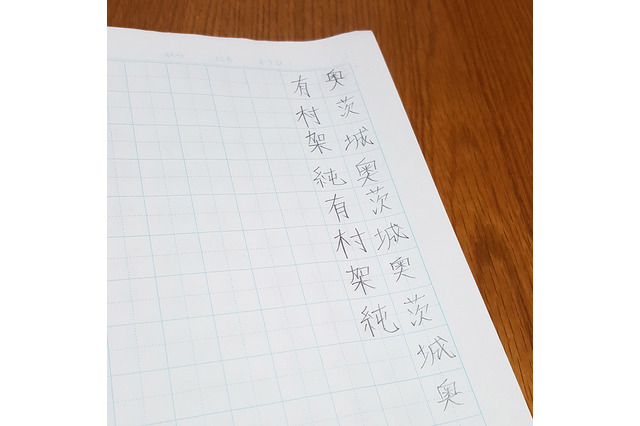 奥茨城奥茨城奥茨城奥
有村架純有村架純